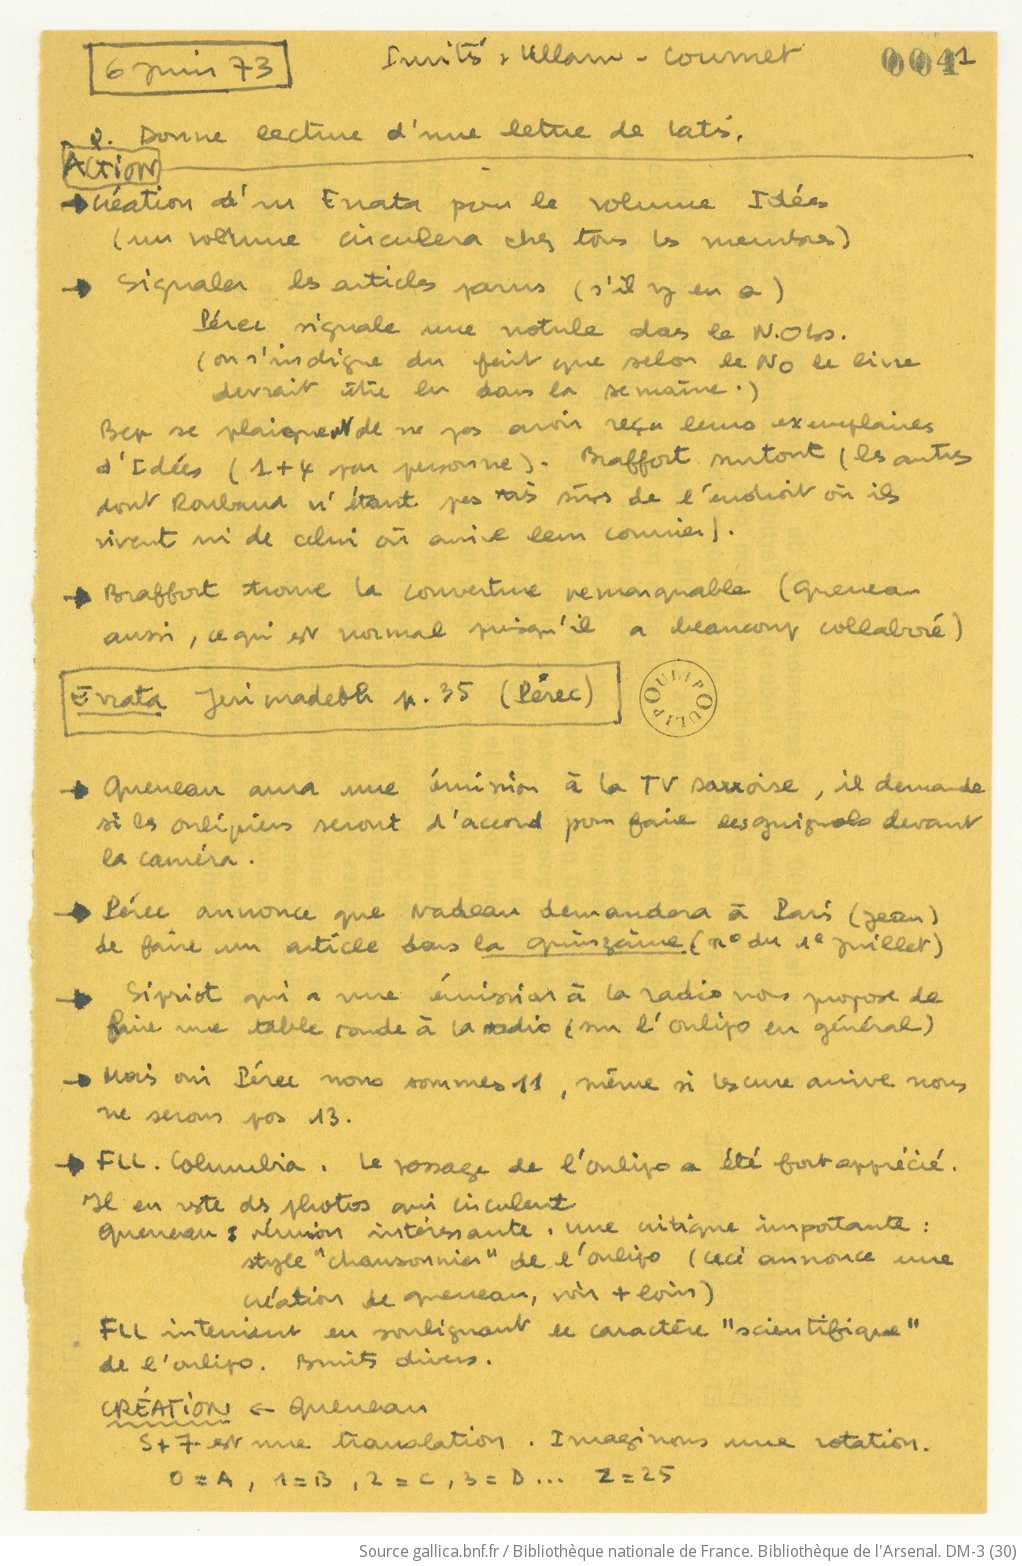 6 juin 73
Invités : Ullam - Coumet
0041
Q. Donne lecture d'une lettre de Latis.
Action
→ Création d'un Errata pour le volume Idées
(un volume circulera chez tous les membres)
→ Signaler les articles parus (s'il y en a)
Pérec signale une notule dans le N.Obs.
(on s'indigne du fait que selon le NO le livre
devrait être lu dans la semaine.)
Ben se plaignent de ne pas avoir reçu leurs exemplaires
d'Idées (1+4 par personne). Braffort surtout (les autres
dont Roubaud n'étant pas très sûrs de l'endroit où ils
vivent ni de celui où arrive leur courrier).
→ Braffort trouve la couverture remarquable (Queneau
aussi, ce qui est normal puisqu'il a beaucoup collaboré)
Errata Jerimadeth p. 35 (Pérec)
OULIPO OULIPO
→ Queneau aura une émission à la TV sarroise, il demande
si les oulipiens seront d'accord pour faire les guignols devant
la caméra.
→ Pérec annonce que Nadeau demandera à Paris (Jean)
de faire un article dans la quinzaine (n° du 1e Juillet)
→ Sipriot qui a une émission à la radio nous propose de
faire une table ronde à la radio (sur l'oulipo en général)
→ Mais oui Pérec nous sommes 11, même si Lescure arrive nous
ne serons pas 13.
→ FLL. Columbia. Le passage de l'oulipo a été fort apprécié.
Il en reste des photos qui circulent
Queneau : réunion intéressante. une critique importante :
style "chansonnier" de l'oulipo (ceci annonce une
création de Queneau, voir + loin)
FLL intervient en soulignant le caractère "scientifique"
de l'oulipo. Bruits divers.
CRÉATION ← Queneau
S+7 est une translation. Imaginons une rotation.
0=A, 1=B, 2=C, 3=D... Z=25
Source gallica.bnf.fr / Bibliothèque nationale de France. Bibliothèque de l'Arsenal. DM-3 (30)